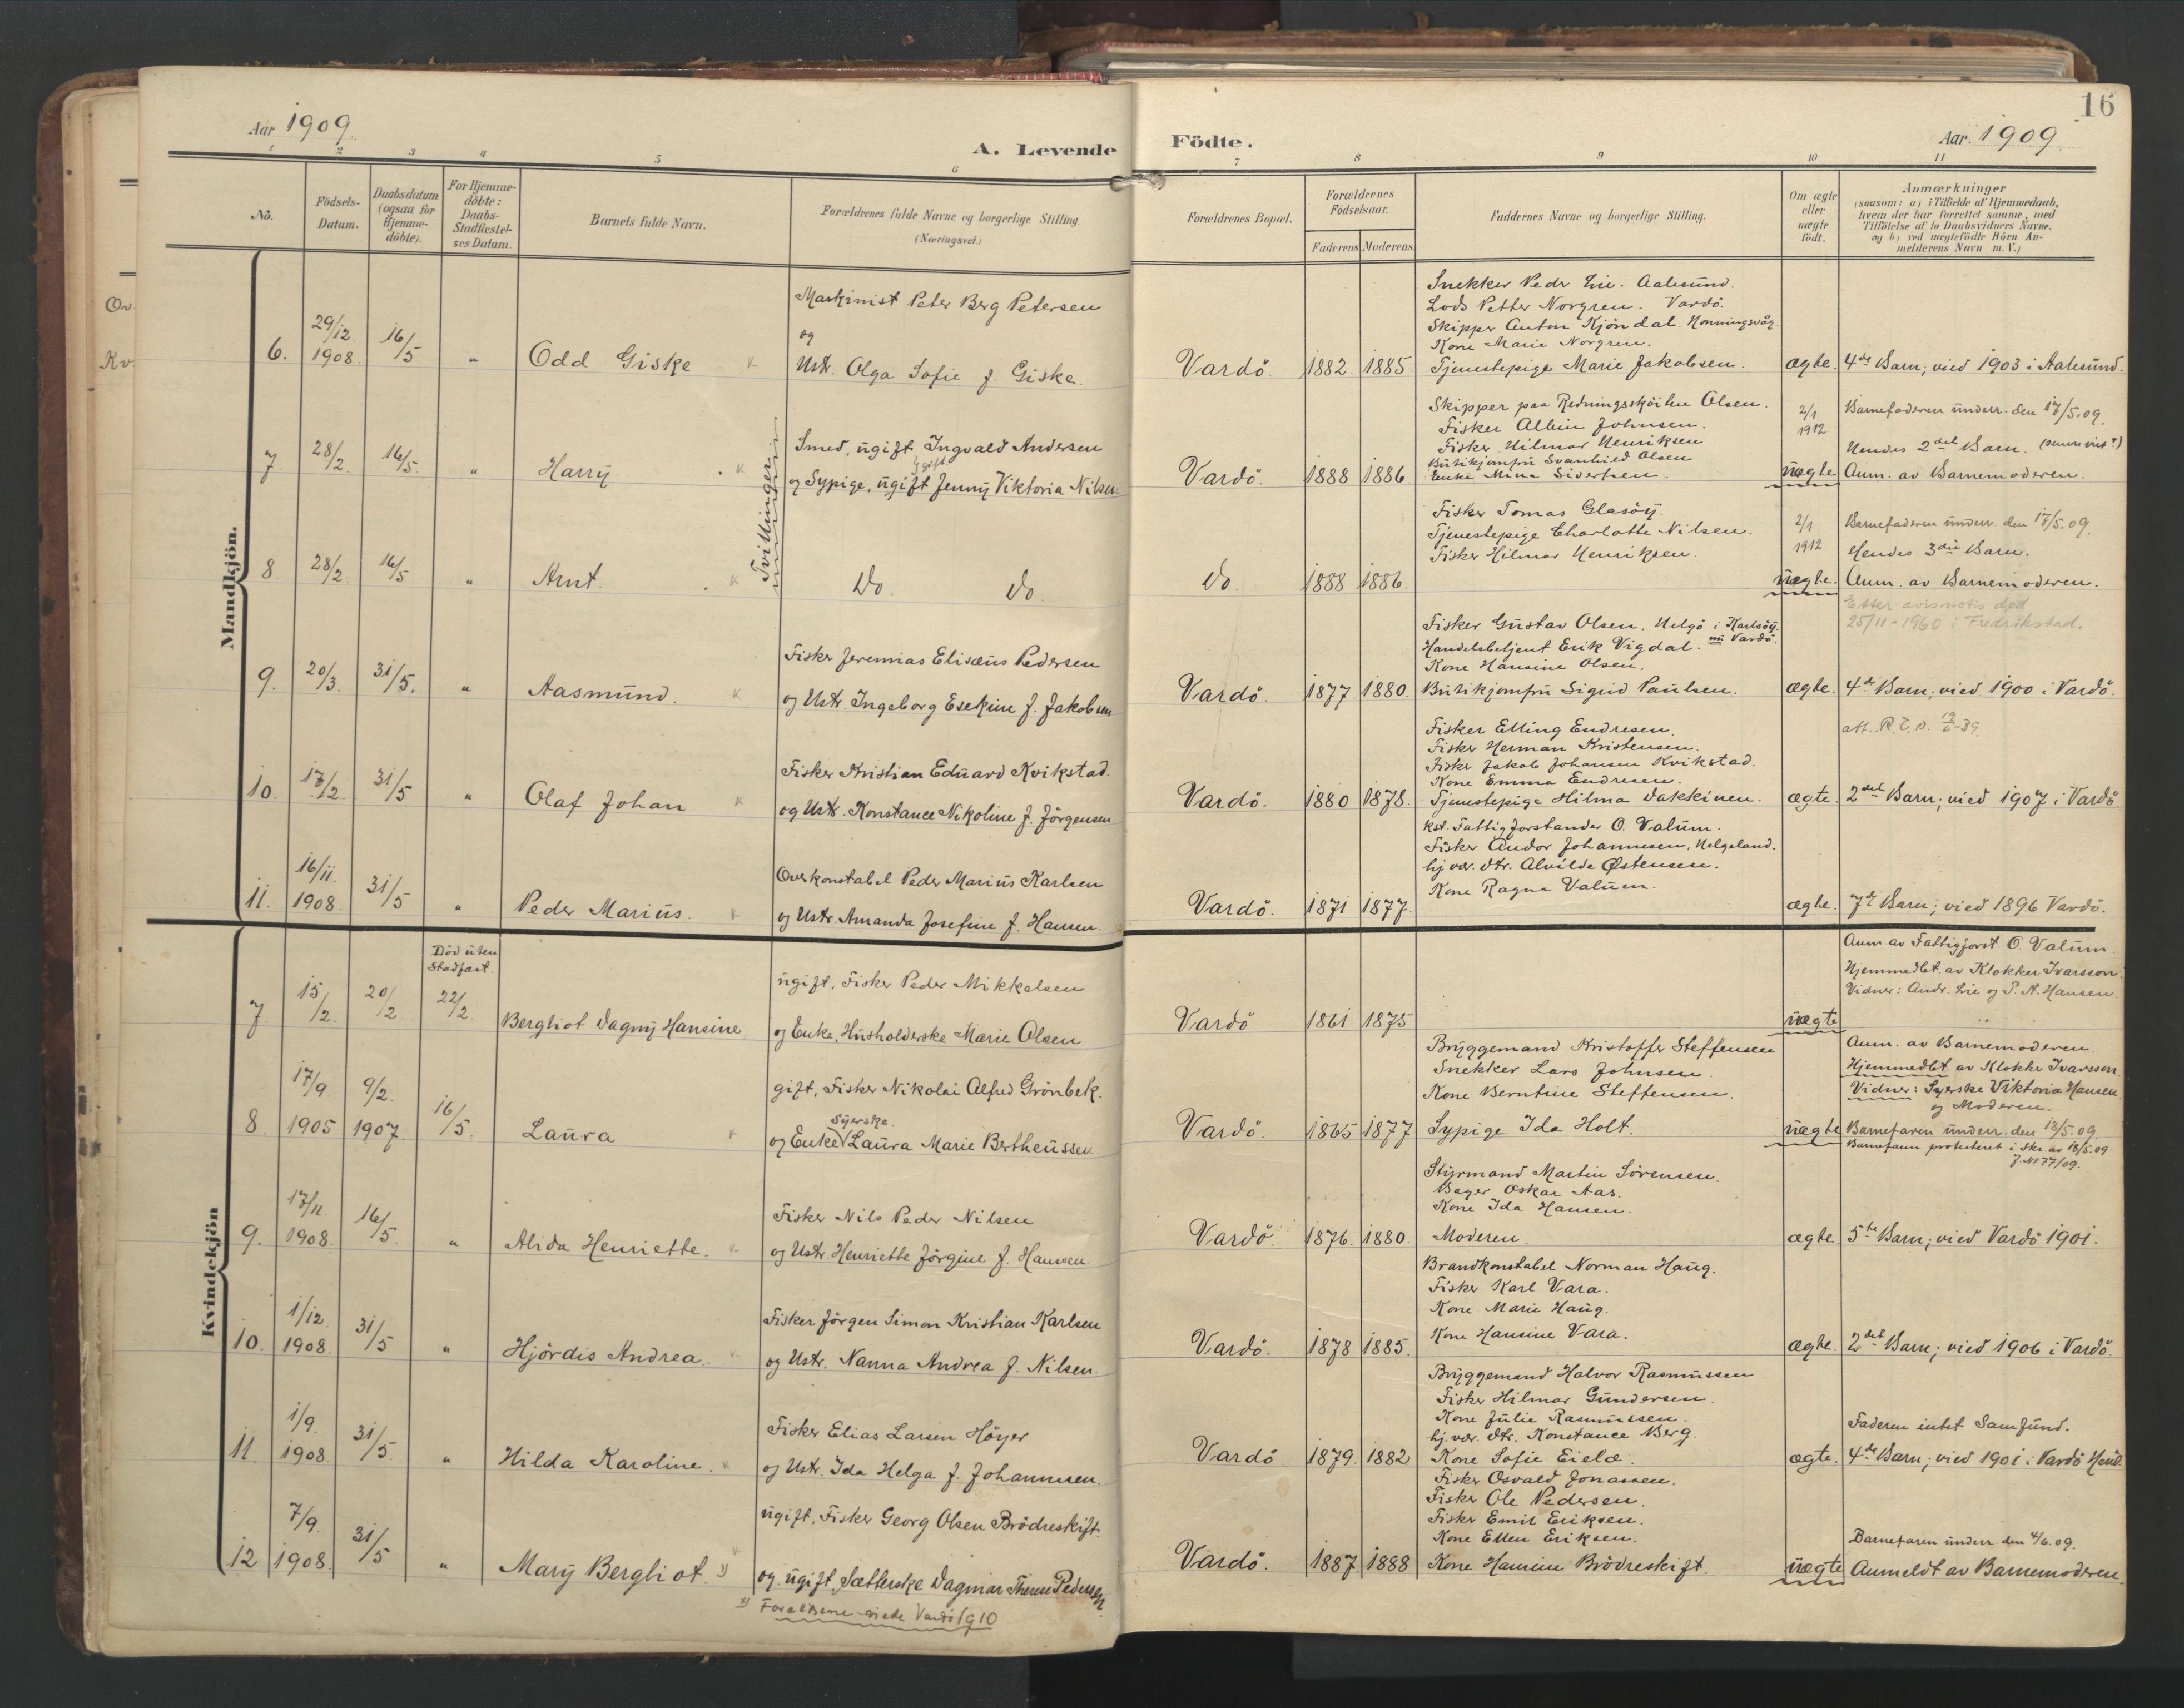 16
Aar 1909.
A. Levende
Födte.
Aar 1909
1 2 3 4 5 6
7 8 9 10 11
No.
Födsels-
Datum.
Daabsdatum
(ogsaa for
Hjemme-
döbte).
For Hjemme-
döbte:
Daabs-
Stadfæstel-
ses Datum.
Barnets fulde Navn.
Forældrenes fulde Navne og borgerlige Stilling
(Næringsvei.)
Forældrenes Bopæl.
Forældrenes
Födselsaar.
Faderens Moderens
Faddernes Navne og borgerlige Stilling.
Om ægte
eller
uægte
födt.
Anmærkninger
(saasom: a) i Tilfælde af Hjemmedaab,
hvem der har forrettet samme, med
Tilföielse af to Daabsvidners Navne,
og b) ved uægtefödte Börn An-
melderens Navn m. V.)
Ov
Kv
Mandkjön.
6. 29/12 1908. 16/5 " Odd Giske
Maskinist Peter Berg Petersen
og
Ustr. Olga Sofie f. Giske.
Vardö. 1882. 1885.
Snekker Peder Lie. Aalesund.
Lods Petter Norgren. Vardö.
Skipper Anton Kjöndal. Honningsvåg.
Kone Marie Norgren.
Tjenestepige Marie Jakobsen.
ægte. 4de Barn; vied 1903 i Aalesund.
7 28/2. 16/5. " Harry
Tvillinger
Smed, ugift Ingvald Andersen
gift
og Sypige, ugift Jenny Viktoria Nilsen
Vardö. 1888 1886.
Skipper paa Redningsskøiten Olsen.
Fisker Albin Johnsen.
Fisker Hilmar Henriksen
Butikjomfru Svanhild Olsen
Enke Mina Sivertsen.
2/1
1912
uægte
Barnefaderen underr. den 17/5.09.
Hendes 2det Barn.
Anm. av Barnemoderen.
8 28/2. 16/5 " Arnt.
Do. Do.
Do. 1888 1886.
Fisker Tomas Glasöy.
Tjenestepige Charlotte Nilsen.
Fisker Hilmar Henriksen.
2/1
1912
uægte.
Barnefaderen underr. den 17/5.09.
Hendes 3die Barn.
Anm. av Barnemoderen.
Etter avisnotis död
25/11-1960 i Fredrikstad.
9. 20/3. 31/5. " Aasmund.
Fisker Jeremias Elisæus Pedersen
og Ustr. Ingeborg Esekine f. Jakobsen
Vardö 1877 1880.
Fisker Gustav Olsen, Helgö i Karlsöy.
Handelsbetjent Erik Vigdal. nu Vardö.
Kone Hansine Olsen.
Butikjomfru Sigrid Paulsen.
ægte. 4de Barn; vied 1900 i Vardö.
10. 17/2. 31/5 " Olaf Johan
Fisker Kristian Eduard Kvikstad.
og Ustr. Konstance Nikoline f. Jörgensen
Vardö. 1880 1878.
Fisker Elling Endresen.
Fisker Herman Kristensen.
Fisker Jakob Johansen Kvikstad.
Kone Emma Endresen.
Tjenestepige Hilma Dakskinen.
ægte.
att. 19/6-39.
2det Barn; vied 1907 i Vardö.
11. 16/11. 1908. 31/5 " Peder Marius.
Overkonstabel Peder Marius Karlsen
og Ustr. Amanda Josefine f. Hansen.
Vardö. 1871 1877.
kst. Fattigforstander O. Valum.
Fisker Andor Johannesen, Helgeland.
hj. vær. dtr. Alvilde Østensen.
Kone Ragna Valum.
ægte. 7de Barn; vied 1896 Vardö.
Kvindekjön
7 15/2. 20/2.
Död uten
Stadfæst.
22/2.
Bergliot Dagny Hansine
ugift, Fisker Peder Mikkelsen
og Enke, Husholderske Marie Olsen
Vardö 1861 1875
uægte
Anm av Fattigforst O. Valum.
Hjemmedbt. av Klokker Ivarsson.
Vidner: Andr. Lie og P. A. Hansen.
8 17/9. 1905 9/2. 1907. 16/5. Laura
gift, Fisker Nikolai Alfred Grönbek.
Syerske
og Enke Laura Marie Bertheussen
Vardö. 1865 1877
Bryggemand Kristoffer Steffensen
Snekker Lars Johnsen.
Kone Berntine Steffensen.
Sypige Ida Holt.
uægte
Anm. av Barnemoderen.
Hjemmedbt av Klokker Ivarsson.
Vidner: Syerske Viktoria Hansen
og Moderen.
Barnefaren underr. den 18/5.09.
Barnefaren protesteret i Skr. av 18/5.09
J. No 77/09.
9. 17/11 1908. 16/5. " Alida Henriette.
Fisker Nils Peder Nilsen
og Ustr. Henriette Jörgine f. Hansen.
Vardö. 1876. 1880.
Styrmand Martin Sörensen.
Bager Oskar Aas.
Kone Ida Hansen.
Moderen.
ægte. 5te Barn; vied Vardö 1901.
10. 1/12. 1908. 31/5 " Hjördis Andrea.
Fisker Jörgen Simon Kristian Karlsen
og Ustr. Nanna Andrea f. Nilsen.
Vardö. 1878 1885.
Brandkonstabel Norman Haug.
Fisker Karl Vara.
Kone Marie Haug.
Kone Hansine Vara.
ægte. 2det Barn; vied 1906 i Vardö.
11. 1/9. 1908 31/5. " Hilda Karoline.
Fisker Elias Larsen Höyer
og Ustr. Ida Helga f. Johannesen.
Vardö 1879. 1882
Bryggemand Halvor Rasmussen
Fisker Hilmar Gundersen.
Kone Julie Rasmussen.
hj. vær. dtr. Konstance Berg.
Kone Sofie Eielæ.
ægte.
Faderen intet Samfund.
4de Barn; vied 1901 i Vardö
12 7/9. 1908 31/5 " Mary Bergliot. 1)
ugift, Fisker Georg Olsen Brödreskift.
og ugift, Sætterske Dagmar Therese Pedersen.
1) Foreldrene viede Vardö 1910
Vardö. 1887. 1888
Fisker Osvald Jonassen.
Fisker Ole Pedersen.
Fisker Emil Eriksen.
Kone Ellen Eriksen.
Kone Hansine Brödreskift.
uægte
Barnefaren underr. den 4/6.09.
Anmeldt av Barnemoderen.